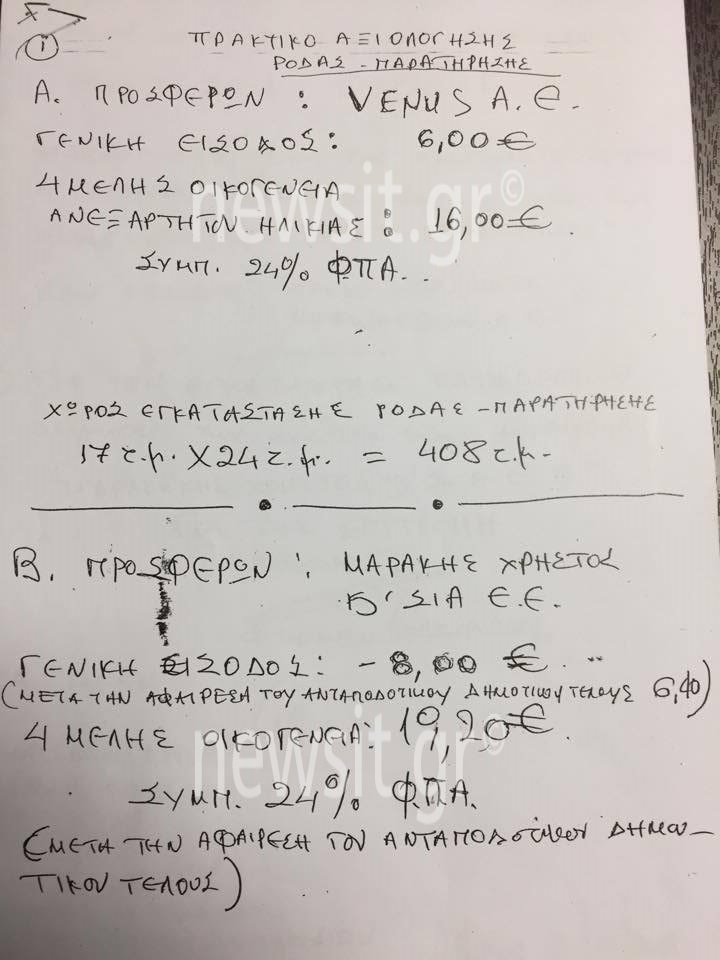 1
ΠΡΑΚΤΙΚΟ ΑΞΙΟΛΟΓΗΣΗΣ
ΡΟΔΑΣ - ΠΑΡΑΤΗΡΗΣΗΣ
Α. ΠΡΟΣΦΕΡΩΝ : VENUS Α.Ε.
ΓΕΝΙΚΗ ΕΙΣΟΔΟΣ: 6,00 €
4 ΜΕΛΗΣ ΟΙΚΟΓΕΝΕΙΑ
ΑΝΕΞΑΡΤΗΤΟΝ ΗΛΙΚΙΑΣ : 16,00 €.
ΣΥΜΠ. 24% ΦΠΑ..
newsit.gr©
ΧΩΡΟΣ ΕΓΚΑΤΑΣΤΑΣΗΣ ΡΟΔΑΣ - ΠΑΡΑΤΗΡΗΣΗΣ
17 τ.μ. Χ 24 τ.μ. = 408 τ.μ.
Β. ΠΡΟΣΦΕΡΩΝ : ΜΑΡΑΚΗΣ ΧΡΗΣΤΟΣ
& ΣΙΑ Ε.Ε.
ΓΕΝΙΚΗ ΕΙΣΟΔΟΣ: - 8,00 €.
(ΜΕΤΑ ΤΗΝ ΑΦΑΙΡΕΣΗ ΤΟΥ ΑΝΤΑΠΟΔΟΤΙΚΟΥ ΔΗΜΟΤΙΚΟΥ ΤΕΛΟΥΣ 6,40)
4 ΜΕΛΗΣ ΟΙΚΟΓΕΝΕΙΑ: 19,20 €.
newsit.gr
ΣΥΜΠ. 24% Φ.Π.Α.
(ΜΕΤΑ ΤΗΝ ΑΦΑΙΡΕΣΗ ΤΟΥ ΑΝΤΑΠΟΔΟΤΙΚΟΥ ΔΗΜΟ-
ΤΙΚΟΥ ΤΕΛΟΥΣ)